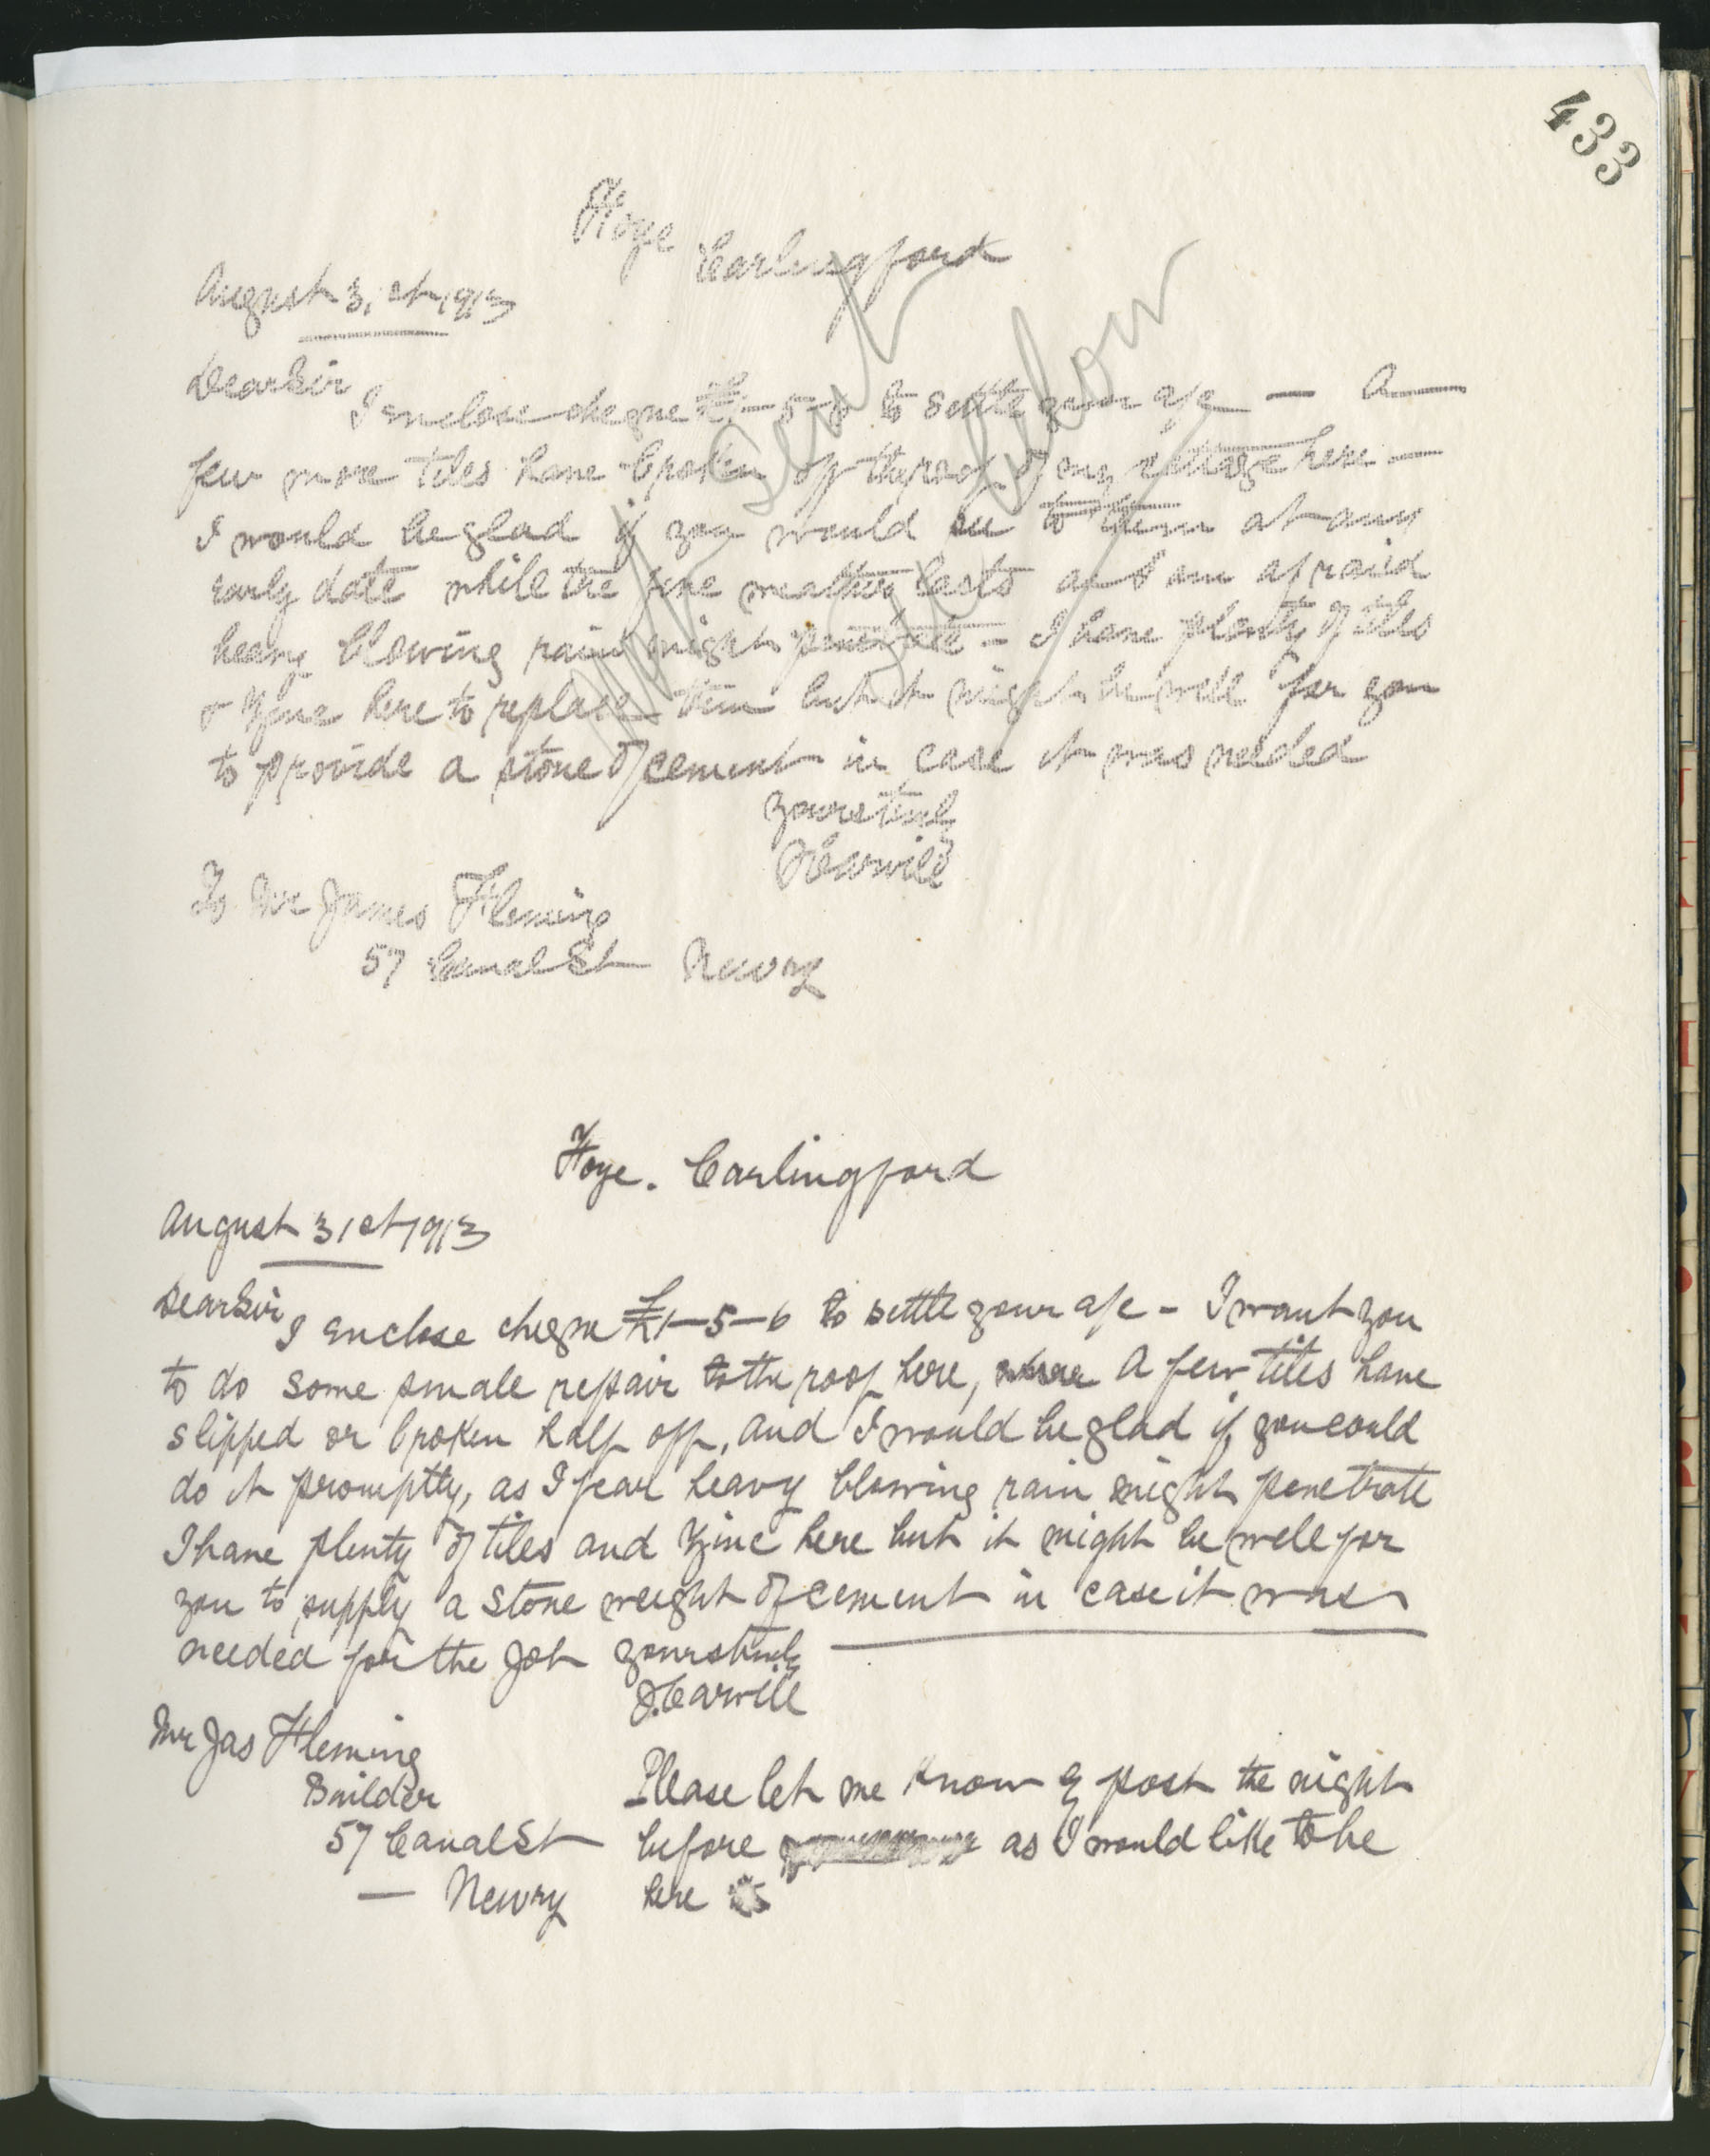 433
Foye
Carlingford
August 31st 1913
Dear Sir
I enclose cheque £1-5-6 to settle your a/c — A
few more tiles have broken off the roof of my cottage here —
I would be glad if you would see to them at any
early date while the fine weather lasts as I am afraid
heavy blowing rain might penetrate - I have plenty of tiles
& zinc here to replace them but it might be well for you
to provide a stone of cement in case it was needed
Yours truly
J Carvill
To Mr James Fleming
57 Canal St Newry
Not sent
see below
Foye. Carlingford
August 31st 1913
Dear Sir
I enclose cheque £1-5-6 to settle your a/c - I want you
to do some small repair to the roof here, where a few tiles have
slipped or broken half off, and I would be glad if you could
do it promptly, as I fear heavy blowing rain might penetrate
I have plenty of tiles and zinc here but it might be well for
you to supply a stone weight of cement in case it was
needed for the job yours truly
J. Carvill
Mr Jas Fleming
Builder
57 Canal St
— Newry
Please let me know by post the night
before as I would like to be
here